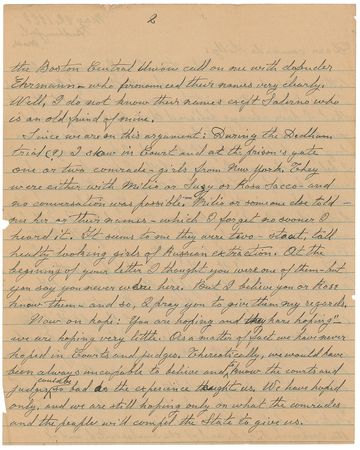 2
the Boston Central Union call on me with defender
Ehrmann - who pronounced their names very clearly.
Well, I do not know their names exept Salerno who
is an old friend of mine.
Since we are on this argument: During the Dedham
trial (?) I saw in Court and at the prison's gate
one or two comrade-girls from New York. They
were either with Milio or Suzy or Rosa Sacco - and
no conversation was possible - Milio or someone else told -
me her or their names - which I forget no sooner I
heard it. It seems to me they were two - stout, tall
healthy looking girls of Russian extraction. At the
begening of your letter I thought you were one of them - but
you say you never were here. But I believe you or Rose
know them - and so, I pray you to give them my regards.
Now on hope: You are hoping and "they are hoping"
we are hoping very little. As a matter of fact we have never
hoped in Courts and judges. Theoretically, we would have
been always uncapable to believe and know the courts and
judges so bad as the experience taught us. We have hoped
only, and we are still hoping only on what the comrades
and the people will compel the State to give us.